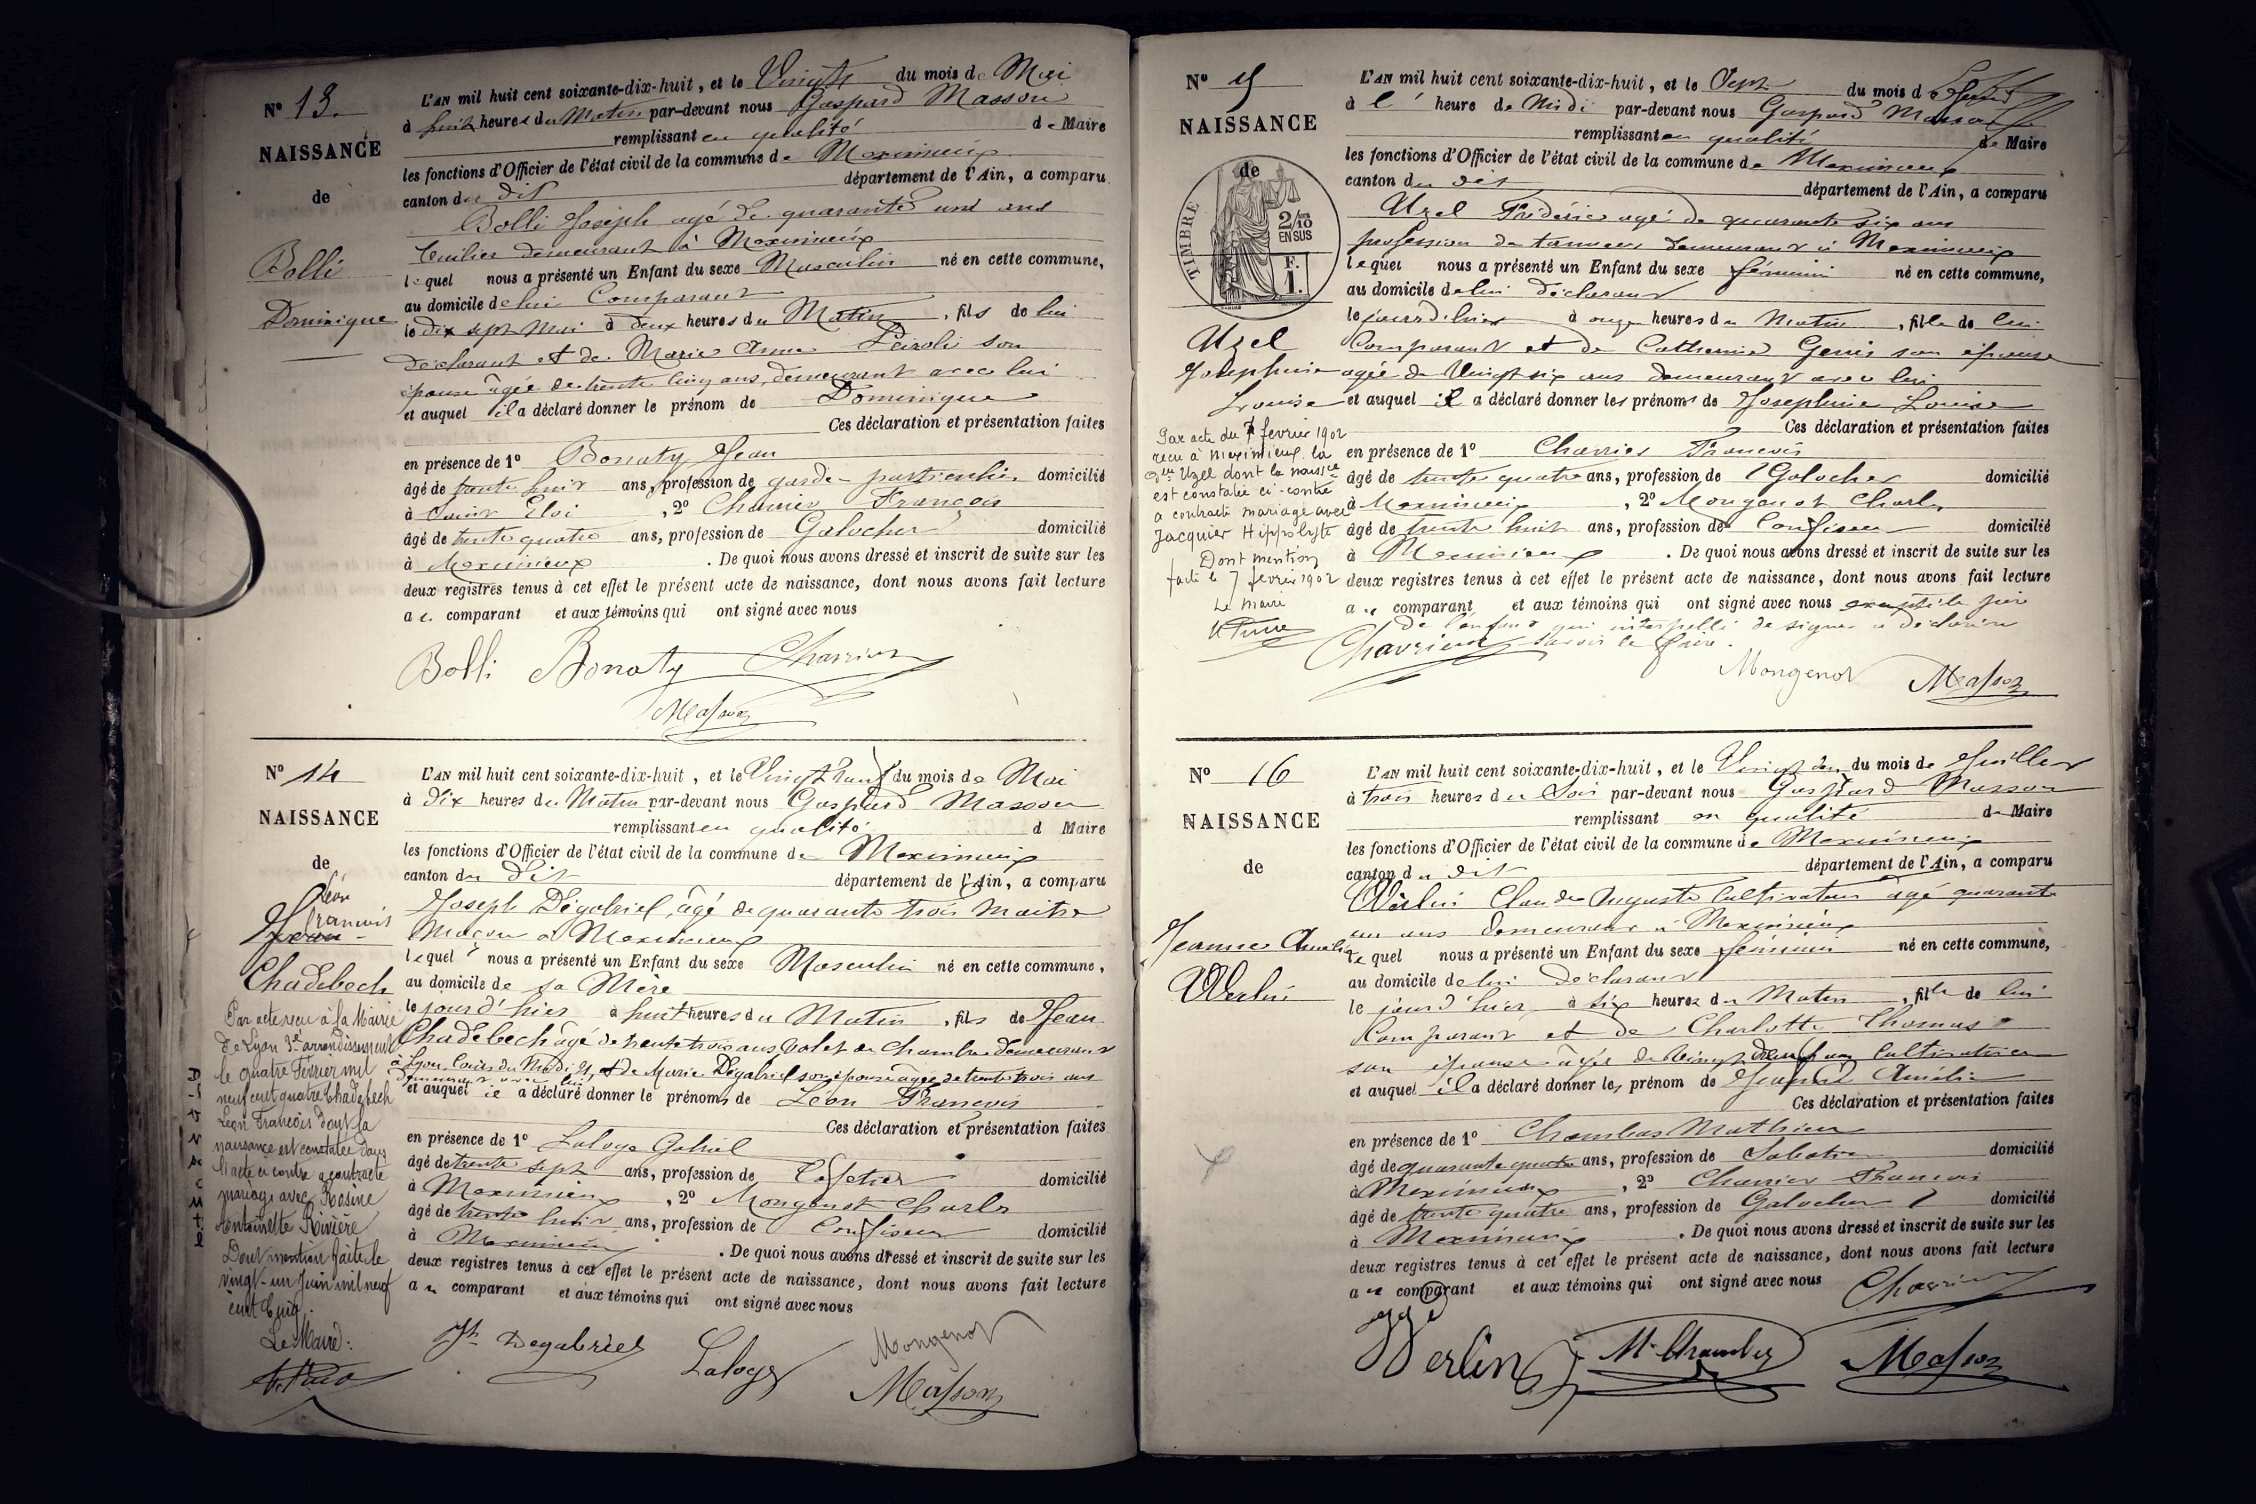 N° 13.
NAISSANCE
de
Bolli
Dominique
L'AN mil huit cent soixante-dix-huit, et le Vingt du mois de Mai
à huit heures du Matin par-devant nous Gaspard Masson
remplissant en qualité de Maire
les fonctions d'Officier de l'état civil de la commune de Meximieux
canton du dit département de l'Ain, a comparu
Bolli Joseph agé de quarante un ans
Tuilier demeurant à Meximieux
lequel nous a présenté un Enfant du sexe Masculin né en cette commune,
au domicile de lui Comparant
le dix sept Mai à deux heures du Matin, fils de lui
déclarant et de Marie Anne son
épouse âgée de trente cinq ans, demeurant avec lui
et auquel il a déclaré donner le prénom de Dominique
Ces déclaration et présentation faites
en présence de 1° Bonaty Jean
âgé de trente huit ans, profession de garde-particulier domicilié
à Saint Eloi, 2° Charrier François
âgé de trente quatre ans, profession de Galocher domicilié
à Meximieux. De quoi nous avons dressé et inscrit de suite sur les
deux registres tenus à cet effet le présent acte de naissance, dont nous avons fait lecture
au comparant et aux témoins qui ont signé avec nous
Bolli Bonaty Charrier
Masson
N° 14
NAISSANCE
de
Léon
François
Jean
Chadebech
Par acte reçu à la Mairie
de Lyon 3e arrondissement
le quatre Février mil
neuf cent quatre Chadebech
Léon François dont la
naissance est constatée dans
l'acte ci contre a contracté
mariage avec Rosine
Antoinette Rivière
Dont mention faite le
vingt-un Juin mil neuf
cent cinq.
Le Maire:
L'AN mil huit cent soixante-dix-huit, et le Vingt neuf du mois de Mai
à Dix heures du Matin par-devant nous Gaspard Masson
remplissant en qualité d Maire
les fonctions d'Officier de l'état civil de la commune de Meximieux
canton du dit département de l'Ain, a comparu
Joseph Dégabriel, âgé de quarante trois Maitre
Maçon à Meximieux
lequel nous a présenté un Enfant du sexe Masculin né en cette commune,
au domicile de sa Mère
le jourd'hier à huit heures du Matin, fils de Jean
Chadebech âgé de trente trois ans Valet de Chambre demeurant
à Lyon Cours du Midi 21, et de Marie Dégabriel son épouse âgée de trente trois ans
demeurant avec lui
et auquel il a déclaré donner le prénoms de Léon François
Ces déclaration et présentation faites
en présence de 1° Laloge Gabriel
âgé de trente sept ans, profession de Cafetier domicilié
à Meximieux, 2° Mongenot Charles
âgé de trente huit ans, profession de Confiseur domicilié
à Meximieux. De quoi nous avons dressé et inscrit de suite sur les
deux registres tenus à cet effet le présent acte de naissance, dont nous avons fait lecture
au comparant et aux témoins qui ont signé avec nous
Jh Degabriel Laloge Mongenot
Masson
N° 15
NAISSANCE
de
TIMBRE
2/10
EN SUS
F.
1.
Uzel
Joséphine
Louise
Par acte du 7 fevrier 1902
reçu à Meximieux la
dite Uzel dont la naissce
est constatée ci-contre
a contracté mariage avec
Jacquier Hippolyte
Dont mention
faite le 7 fevrier 1902
Le Maire
L'AN mil huit cent soixante-dix-huit, et le Sept du mois d
à l' heure de Midi par-devant nous Gaspard Masson
remplissant en qualité de Maire
les fonctions d'Officier de l'état civil de la commune de Meximieux
canton du dit département de l'Ain, a comparu
Uzel Frédéric agé de quarante six ans
profession de tanneur demeurant à Meximieux
lequel nous a présenté un Enfant du sexe féminin né en cette commune,
au domicile de lui déclarant
le jourd'hier à onze heures du Matin, fille de lui
Comparant et de Catherine son épouse
agée de Vingt six ans demeurant avec lui
et auquel il a déclaré donner les prénoms de Joséphine Louise
Ces déclaration et présentation faites
en présence de 1° Charrier François
âgé de trente quatre ans, profession de Galocher domicilié
à Meximieux, 2° Mongenot Charles
âgé de trente huit ans, profession de Confiseur domicilié
à Meximieux. De quoi nous avons dressé et inscrit de suite sur les
deux registres tenus à cet effet le présent acte de naissance, dont nous avons fait lecture
au comparant et aux témoins qui ont signé avec nous excepté le père
de l'enfant qui interpellé de signer a déclaré ne
savoir le faire.
Charrier Mongenot Masson
N° 16
NAISSANCE
de
Jeanne Amélie
Werlin
L'AN mil huit cent soixante-dix-huit, et le Vingt deux du mois de Juillet
à trois heures du Soir par-devant nous Gaspard Masson
remplissant en qualité de Maire
les fonctions d'Officier de l'état civil de la commune de Meximieux
canton du dit département de l'Ain, a comparu
Werlin Claude Auguste Cultivateur agé quarante
un ans demeurant à Meximieux
lequel nous a présenté un Enfant du sexe féminin né en cette commune,
au domicile de lui Déclarant
le jourd'hier à six heures du Matin, fille de lui
Comparant et de Charlotte Thomas
son épouse âgée de Vingt neuf ans Cultivatrice
et auquel il a déclaré donner les prénom de Jeanne Amélie
Ces déclaration et présentation faites
en présence de 1° Chambas Mathieu
âgé de quarante quatre ans, profession de Sabotier domicilié
à Meximieux, 2° Charrier François
âgé de trente quatre ans, profession de Galocher domicilié
à Meximieux. De quoi nous avons dressé et inscrit de suite sur les
deux registres tenus à cet effet le présent acte de naissance, dont nous avons fait lecture
au comparant et aux témoins qui ont signé avec nous Charrier
Werlin Masson